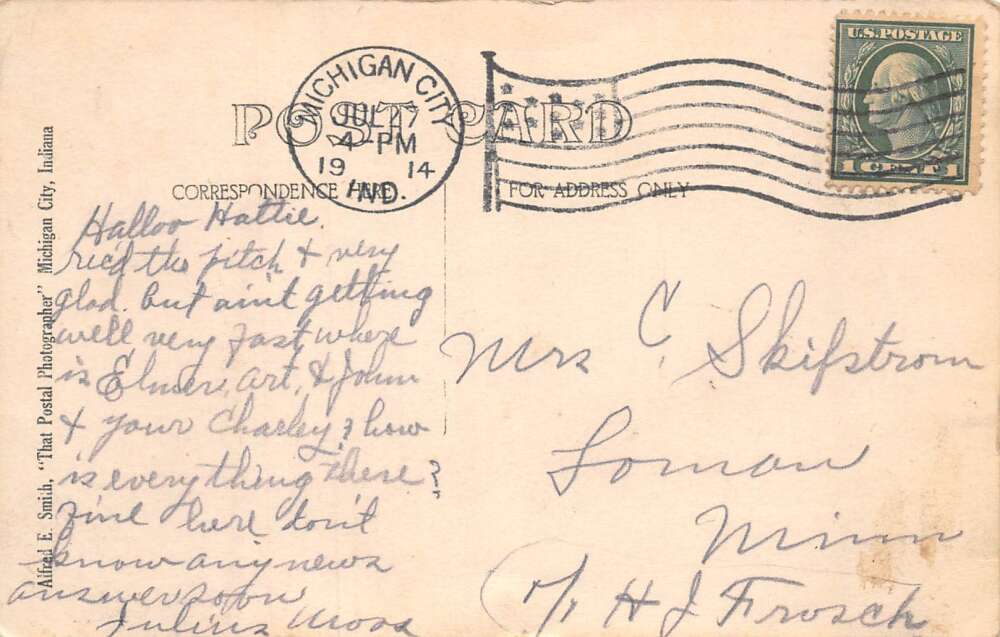 MICHIGAN CITY
JUL 27
4-PM
19 14
IND.
U.S. POSTAGE
1 CENT 1
POST CARD
CORRESPONDENCE HERE
FOR ADDRESS ONLY
Alfred E. Smith, "That Postal Photographer" Michigan City, Indiana
Halloo Hattie.
rec'd the & very
glad. but aint getting
well very fast where
is Elmer, art, & John
& your Charley, & how
is everything there?
Fine here don't
know any news
answer soon
Julius Moss
Mrs C. Skifstrom
Loman
Minn
c/o H J Frosch